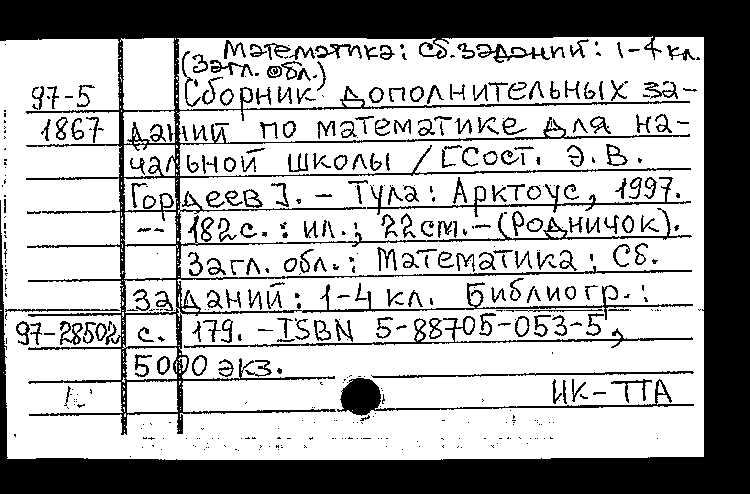 Математика: Сб. заданий: 1-4 кл.
(Загл. обл.)
97-5 Сборник дополнительных за-
1867 даний по математике для на-
чальной школы / [Сост. Э.В.
Гордеев]. - Тула: Арктоус, 1997.
-- 182с.: ил.; 22см. - (Родничок).
Загл. обл.: Математика: Сб.
заданий: 1-4 кл. Библиогр.:
97-28502 с. 179. - ISBN 5-88705-053-5,
5000 экз.